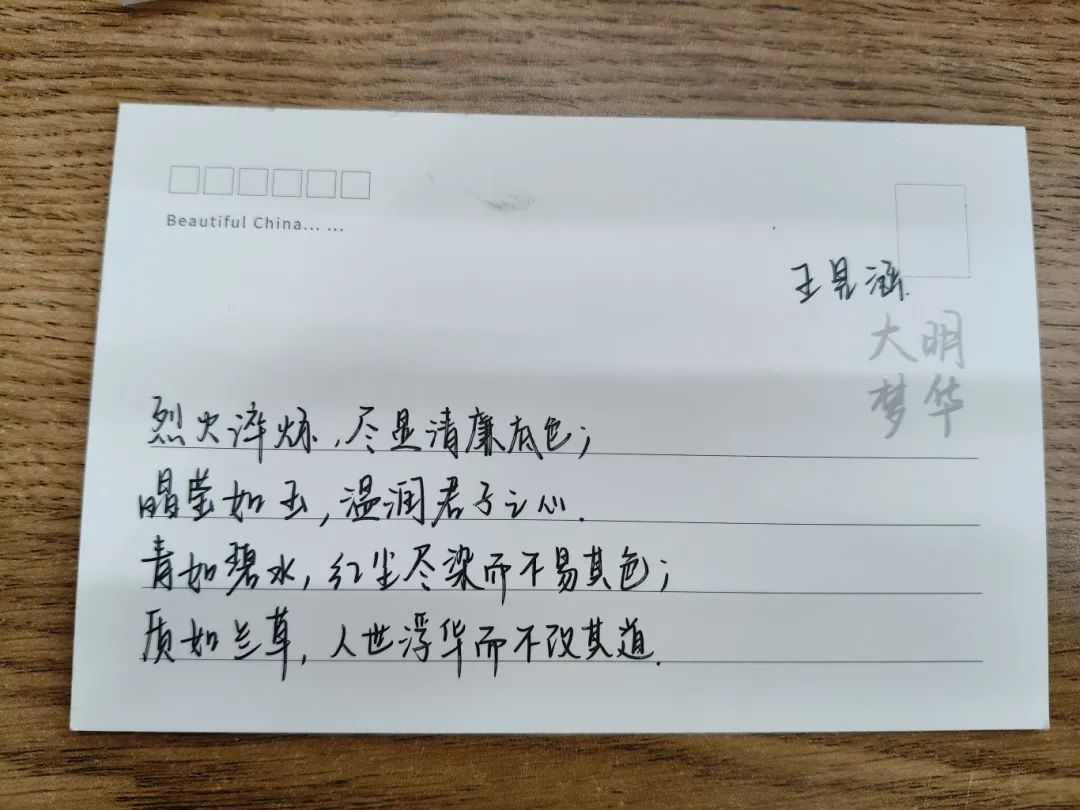 Beautiful China... ...
王晃涵
大明
梦华
烈火淬炼,尽显清廉底色;
晶莹如玉,温润君子之心.
青如碧水,红尘尽染而不易其色;
质如兰草,人世浮华而不改其道.